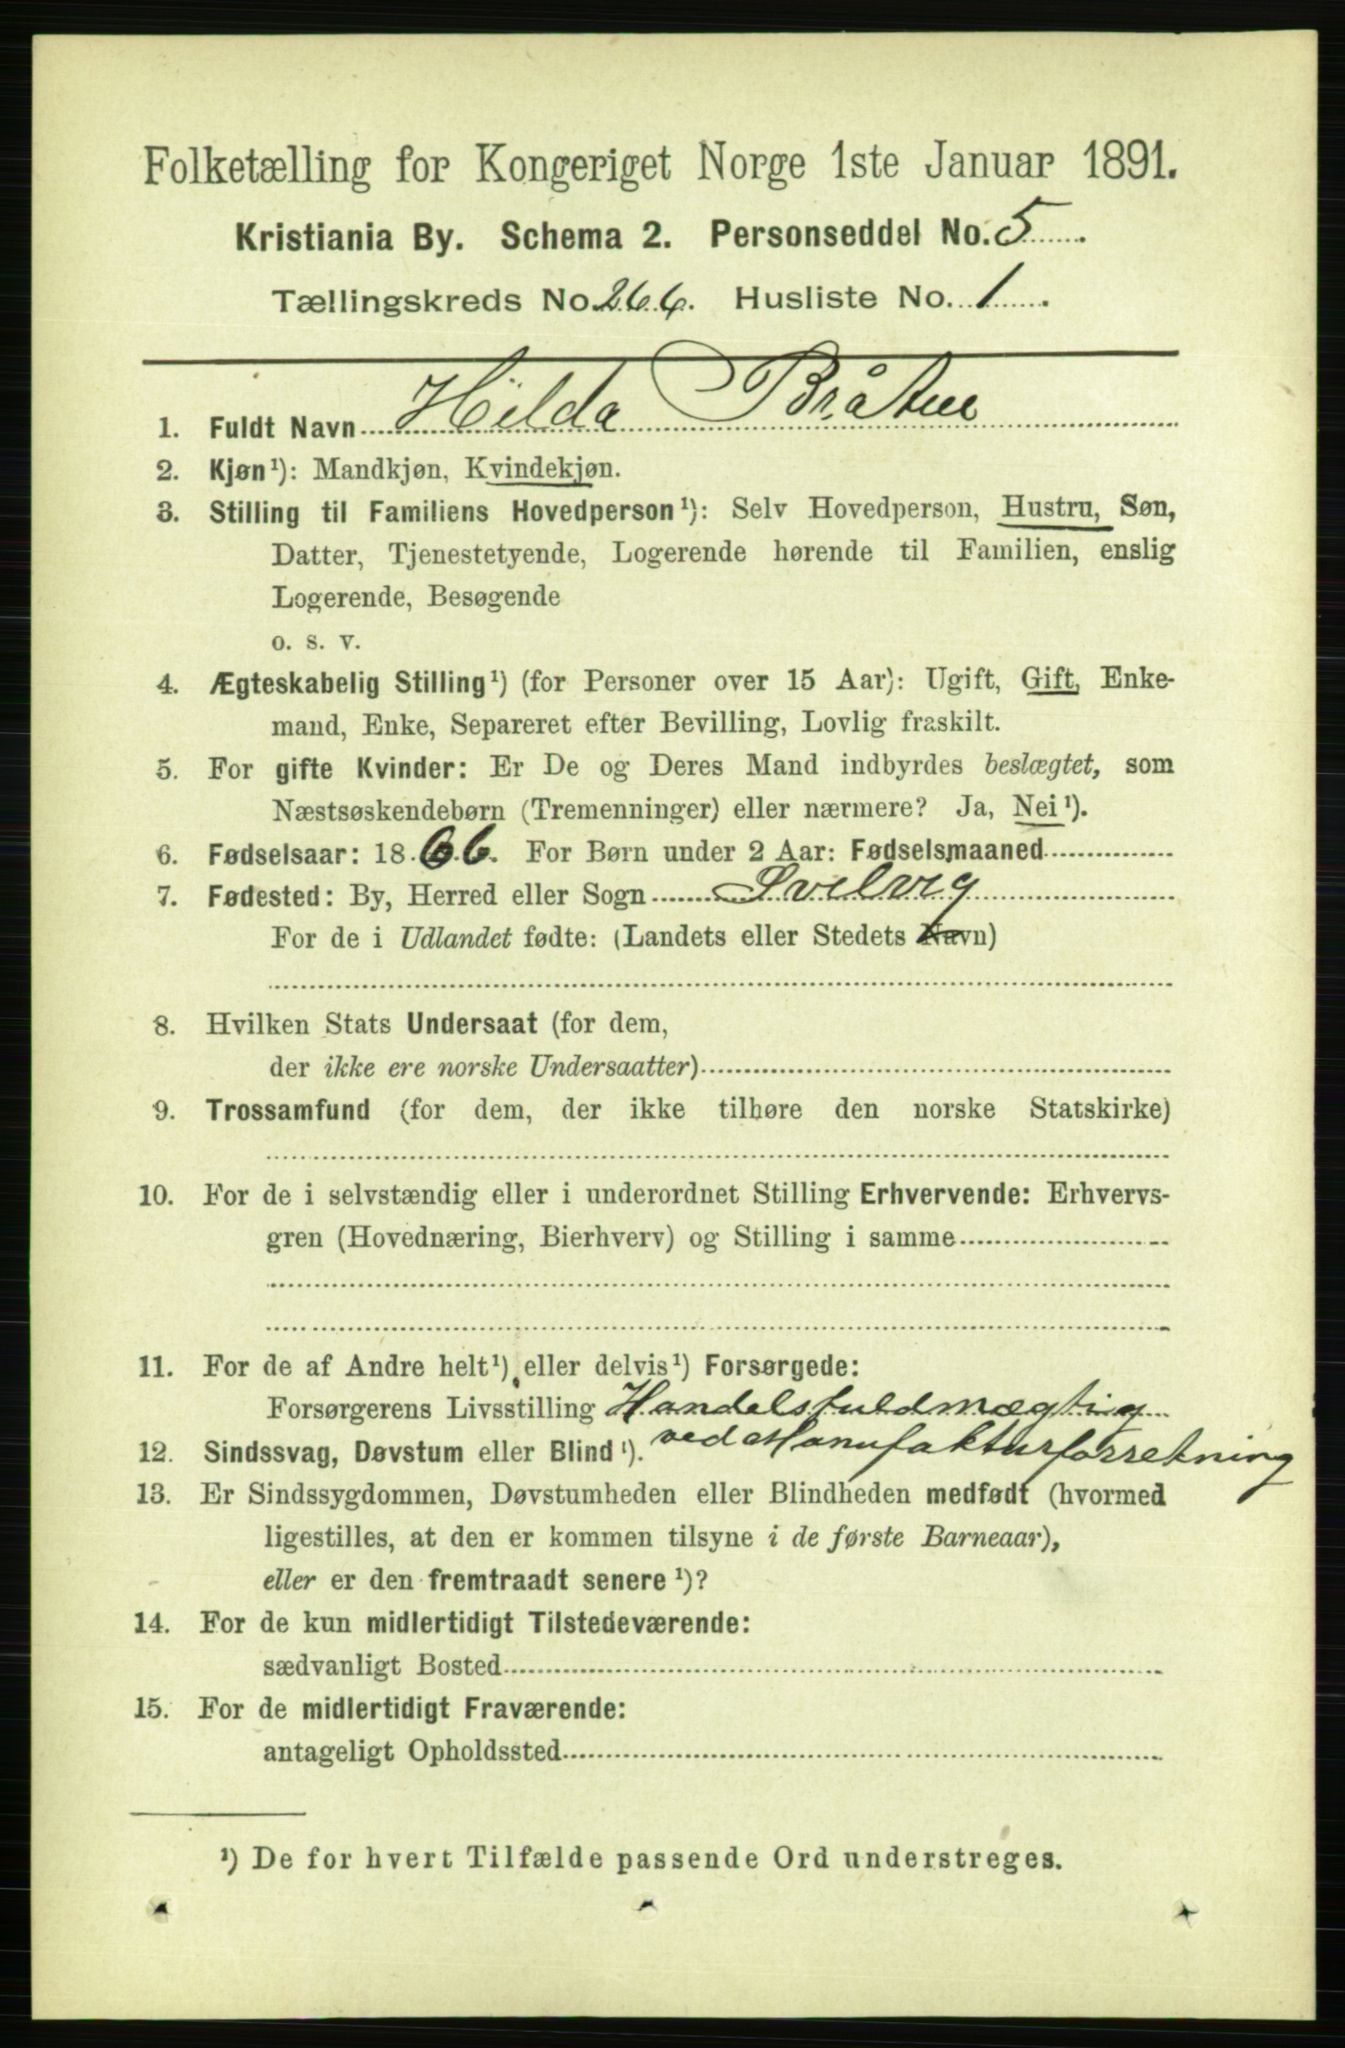 Folketælling for Kongeriget Norge 1ste Januar 1891.
Kristiania By. Schema 2. Personseddel No. 5
Tællingskreds No. 266. Husliste No. 1.
1. Fuldt Navn Hilda Bråten
2. Kjøn¹): Mandkjøn, Kvindekjøn.
3. Stilling til Familiens Hovedperson¹): Selv Hovedperson, Hustru, Søn,
Datter, Tjenestetyende, Logerende hørende til Familien, enslig
Logerende, Besøgende
o. s. v.
4. Ægteskabelig Stilling¹) (for Personer over 15 Aar): Ugift, Gift, Enke-
mand, Enke, Separeret efter Bevilling, Lovlig fraskilt.
5. For gifte Kvinder: Er De og Deres Mand indbyrdes beslægtet, som
Næstsøskendebørn (Tremenninger) eller nærmere? Ja, Nei¹).
6. Fødselsaar: 1866. For Børn under 2 Aar: Fødselsmaaned
7. Fødested: By, Herred eller Sogn Svelvig
For de i Udlandet fødte: (Landets eller Stedets Navn)
8. Hvilken Stats Undersaat (for dem,
der ikke ere norske Undersaatter)
9. Trossamfund (for dem, der ikke tilhøre den norske Statskirke)
10. For de i selvstændig eller i underordnet Stilling Erhvervende: Erhvervs-
gren (Hovednæring, Bierhverv) og Stilling i samme
11. For de af Andre helt¹) eller delvis¹) Forsørgede:
Forsørgerens Livsstilling Handelsfuldmægtig
ved Manufakturforretning
12. Sindssvag, Døvstum eller Blind¹).
13. Er Sindssygdommen, Døvstumheden eller Blindheden medfødt (hvormed
ligestilles, at den er kommen tilsyne i de første Barneaar),
eller er den fremtraadt senere¹)?
14. For de kun midlertidigt Tilstedeværende:
sædvanligt Bosted
15. For de midlertidigt Fraværende:
antageligt Opholdssted
¹) De for hvert Tilfælde passende Ord understreges.